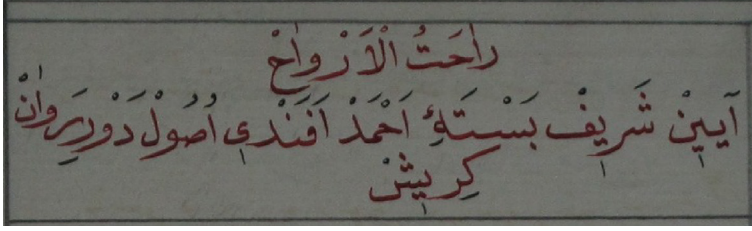 رَاحَتُ الْاَرْوَاحْ
آيِينْ شَرِيفْ بَسْتَهٔ اَحْمَدْ اَفَنْدِى اُصُولْ دَوْرِرَوَانْ
كِرِيشْ